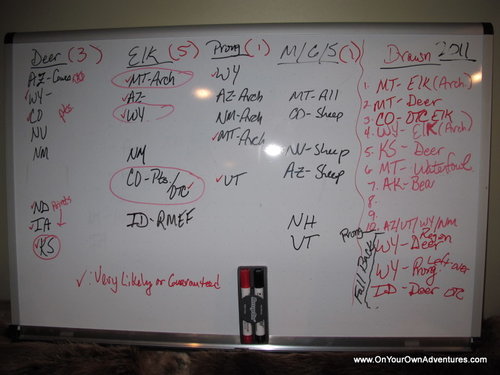 Deer (3)
AZ-Coues pts
WY-
CO pts
NV
NM
ND Points
IA
KS
Elk (5)
MT-Arch
AZ-
WY
NM
CO-Pts/OTC
ID-RMEF
Prong (1)
WY
AZ-Arch
NM-Arch
MT-Arch
UT
M/G/S (1)
MT-All
CO-Sheep
NV-Sheep
AZ-Sheep
NH
VT
Drawn 2011
1. MT-Elk (Arch)
2. MT-Deer
3. CO-OTC Elk
4. WY-Elk (Arch)
5. KS-Deer
6. MT-Waterfowl
7. AK-Bear
8.
9.
10. AZ/UT/WY/NM
Prong
Fall Back
WY-Region Deer
WY-Left-over Prong
ID-Deer OTC
✓: Very Likely or Guaranteed
www.OnYourOwnAdventures.com